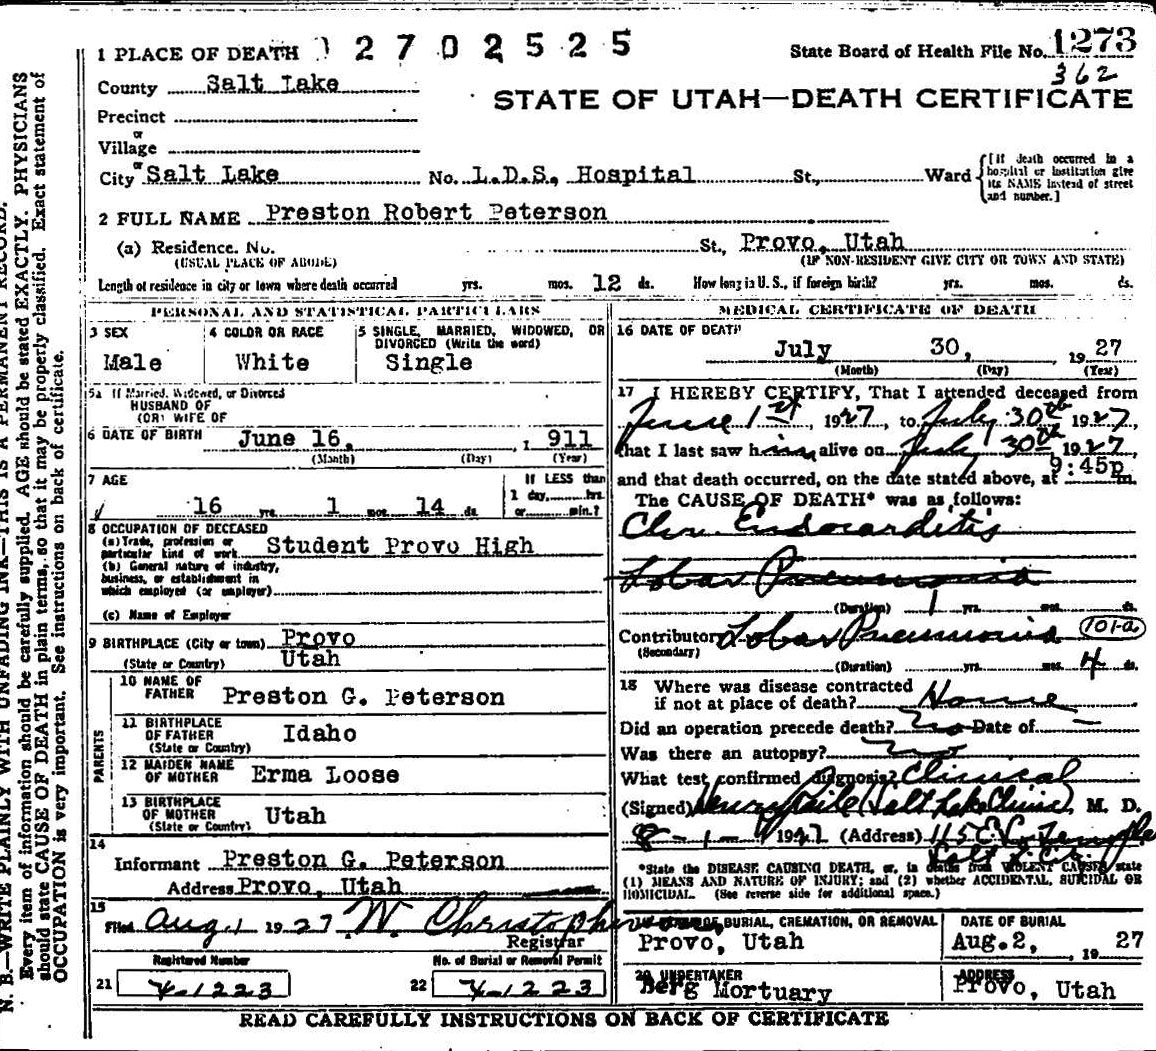 1 PLACE OF DEATH 2702525 State Board of Health File No. 1273
362
County Salt Lake
STATE OF UTAH—DEATH CERTIFICATE
Precinct
or
Village
or
City Salt Lake No. L.D.S. Hospital St., Ward
[If death occurred in a hospital or institution give its NAME instead of street and number.]
2 FULL NAME Preston Robert Peterson
(a) Residence. No. St., Provo, Utah
(USUAL PLACE OF ABODE) (IF NON-RESIDENT GIVE CITY OR TOWN AND STATE)
Length of residence in city or town where death occurred yrs. mos. 12 ds. How long in U. S., if foreign birth? yrs. mos. ds.
PERSONAL AND STATISTICAL PARTICULARS
3 SEX
Male
4 COLOR OR RACE
White
5 SINGLE, MARRIED, WIDOWED, OR
DIVORCED (Write the word)
Single
5a If Married, Widowed, or Divorced
HUSBAND OF
(OR) WIFE OF
6 DATE OF BIRTH June 16, 1 911
(Month) (Day) (Year)
7 AGE
16 yrs. 1 mos. 14 ds.
If LESS than
1 day, hrs.
or min.?
8 OCCUPATION OF DECEASED
(a) Trade, profession or
particular kind of work Student Provo High
(b) General nature of industry,
business, or establishment in
which employed (or employer)
(c) Name of Employer
9 BIRTHPLACE (City or town) Provo
(State or Country) Utah
PARENTS
10 NAME OF
FATHER Preston G. Peterson
11 BIRTHPLACE
OF FATHER Idaho
(State or Country)
12 MAIDEN NAME
OF MOTHER Erma Loose
13 BIRTHPLACE
OF MOTHER Utah
(State or Country)
14
Informant Preston G. Peterson
Address Provo, Utah
15
Filed Aug 1 1927 W. Christopherson,
Registrar
Registered Number No. of Burial or Removal Permit
21 4-1223 22 4-1223
MEDICAL CERTIFICATE OF DEATH
16 DATE OF DEATH
July 30, 19 27
(Month) (Day) (Year)
17 I HEREBY CERTIFY, That I attended deceased from
June 1st, 1927, to July 30th 1927,
that I last saw him alive on July 30th 1927
and that death occurred, on the date stated above, at 9:45p m.
The CAUSE OF DEATH* was as follows:
Chr. Endocarditis
Lobar Pneumonia
(Duration) 1 yrs. mos. ds.
Contributory Lobar Pneumonia 101-a
(Secondary)
(Duration) yrs. mos. 4 ds.
18 Where was disease contracted
if not at place of death? Home
Did an operation precede death? No Date of —
Was there an autopsy? No
What test confirmed diagnosis? Clinical
(Signed) Henry Raile (Salt Lake Clinic), M. D.
8-1-1927 (Address) 115 E. So. Temple
Salt L. C.
*State the DISEASE CAUSING DEATH, or, in deaths from VIOLENT CAUSES, state
(1) MEANS AND NATURE OF INJURY; and (2) whether ACCIDENTAL, SUICIDAL OR
HOMICIDAL. (See reverse side for additional space.)
19 PLACE OF BURIAL, CREMATION, OR REMOVAL
Provo, Utah
DATE OF BURIAL
Aug. 2, 19 27
20 UNDERTAKER
Berg Mortuary
ADDRESS
Provo, Utah
READ CAREFULLY INSTRUCTIONS ON BACK OF CERTIFICATE
N. B.—WRITE PLAINLY WITH UNFADING INK—THIS IS A PERMANENT RECORD.
Every item of information should be carefully supplied. AGE should be stated EXACTLY. PHYSICIANS
should state CAUSE OF DEATH in plain terms, so that it may be properly classified. Exact statement of
OCCUPATION is very important. See instructions on back of certificate.